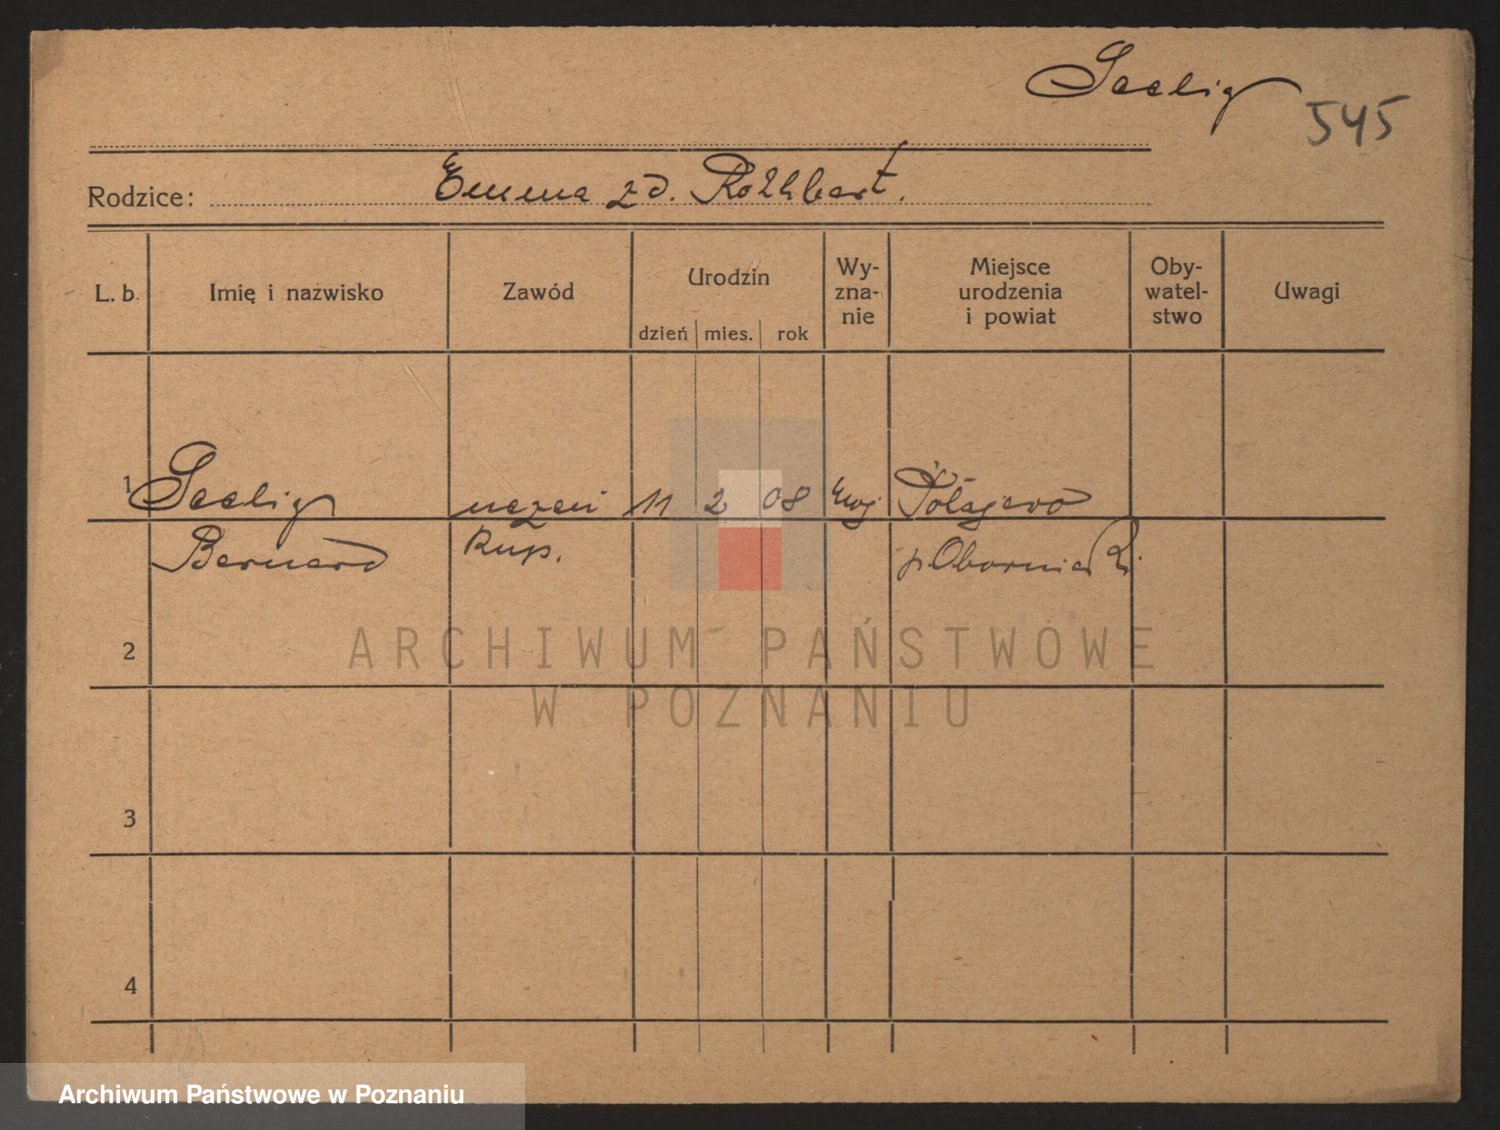 Seelig 545
Rodzice: Emma zd. Rothbart.
L. b. Imię i nazwisko Zawód Urodzin dzień mies. rok Wy- zna- nie Miejsce urodzenia i powiat Oby- watel- stwo Uwagi
1 Seelig uczeń 11 2 08 Połajewo
Bernard kup. p. Oborniki
ARCHIWUM PAŃSTWOWE
2
W POZNANIU
3
4
Archiwum Państwowe w Poznaniu